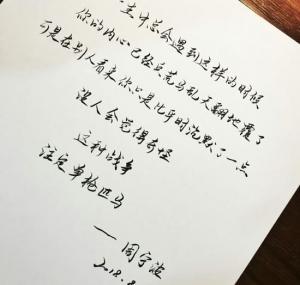 一生中总会遇到这样的时候
你的内心已经兵荒马乱天翻地覆了
可是在别人看来你只是比平时沉默了一点
没人会觉得奇怪
这种战争
注定单枪匹马
——周宇波
2018.8